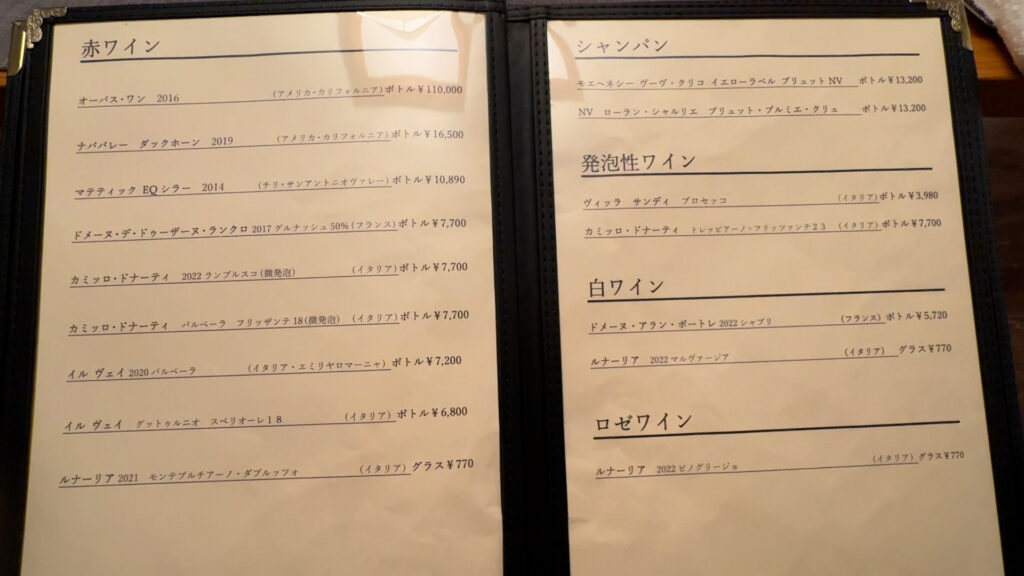 赤ワイン
オーパス・ワン 2016 (アメリカ・カリフォルニア) ボトル¥110,000
ナパバレー ダックホーン 2019 (アメリカ・カリフォルニア) ボトル¥16,500
マテティック EQ シラー 2014 (チリ・サンアントニオヴァレー) ボトル¥10,890
ドメーヌ・デ・ドゥーザーヌ・ランクロ 2017 グルナッシュ 50% (フランス) ボトル¥7,700
カミッロ・ドナーティ 2022 ランブルスコ (微発泡) (イタリア) ボトル¥7,700
カミッロ・ドナーティ バルベーラ フリッザンテ 18 (微発泡) (イタリア) ボトル¥7,700
イル ヴェイ 2020 バルベーラ (イタリア・エミリヤロマーニャ) ボトル¥7,200
イル ヴェイ グットゥルニオ スペリオーレ18 (イタリア) ボトル¥6,800
ルナーリア 2021 モンテプルチアーノ・ダブルッツォ (イタリア) グラス¥770
シャンパン
モエヘネシー ヴーヴ・クリコ イエローラベル ブリュット NV ボトル¥13,200
NV ローラン・シャルリエ ブリュット・プルミエ・クリュ ボトル¥13,200
発泡性ワイン
ヴィッラ サンディ プロセッコ (イタリア) ボトル¥3,980
カミッロ・ドナーティ トレッビアーノ・フリッツァンテ23 (イタリア) ボトル¥7,700
白ワイン
ドメーヌ・アラン・ポートレ 2022 シャブリ (フランス) ボトル¥5,720
ルナーリア 2022 マルヴァージア (イタリア) グラス¥770
ロゼワイン
ルナーリア 2022 ピノグリージョ (イタリア) グラス¥770